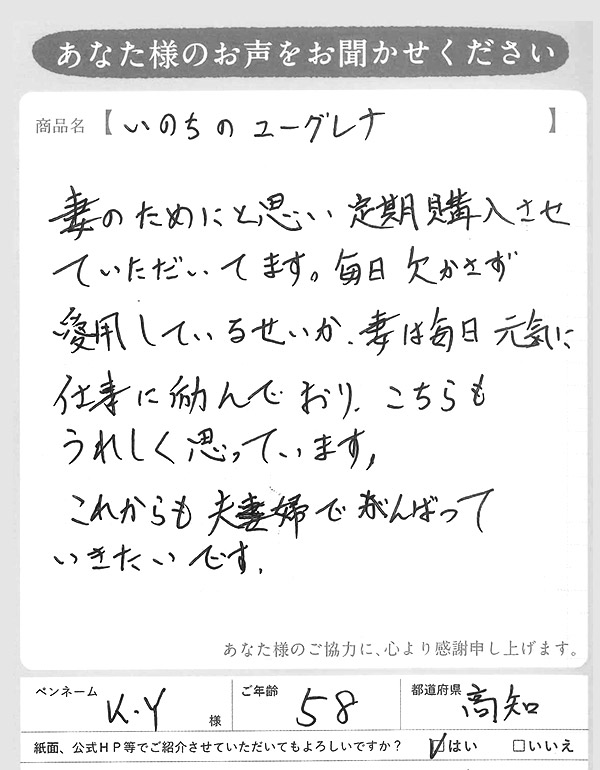 あなた様のお声をお聞かせください
商品名【いのちのユーグレナ】
妻のためにと思い定期購入させ
ていただいてます。毎日欠かさず
愛用しているせいか、妻は毎日元気に
仕事に励んでおり、こちらも
うれしく思っています。
これからも夫婦でがんばって
いきたいです。
あなた様のご協力に、心より感謝申し上げます。
ペンネーム K.Y 様 ご年齢 58 都道府県 高知
紙面、公式HP等でご紹介させていただいてもよろしいですか？ ☑はい □いいえ